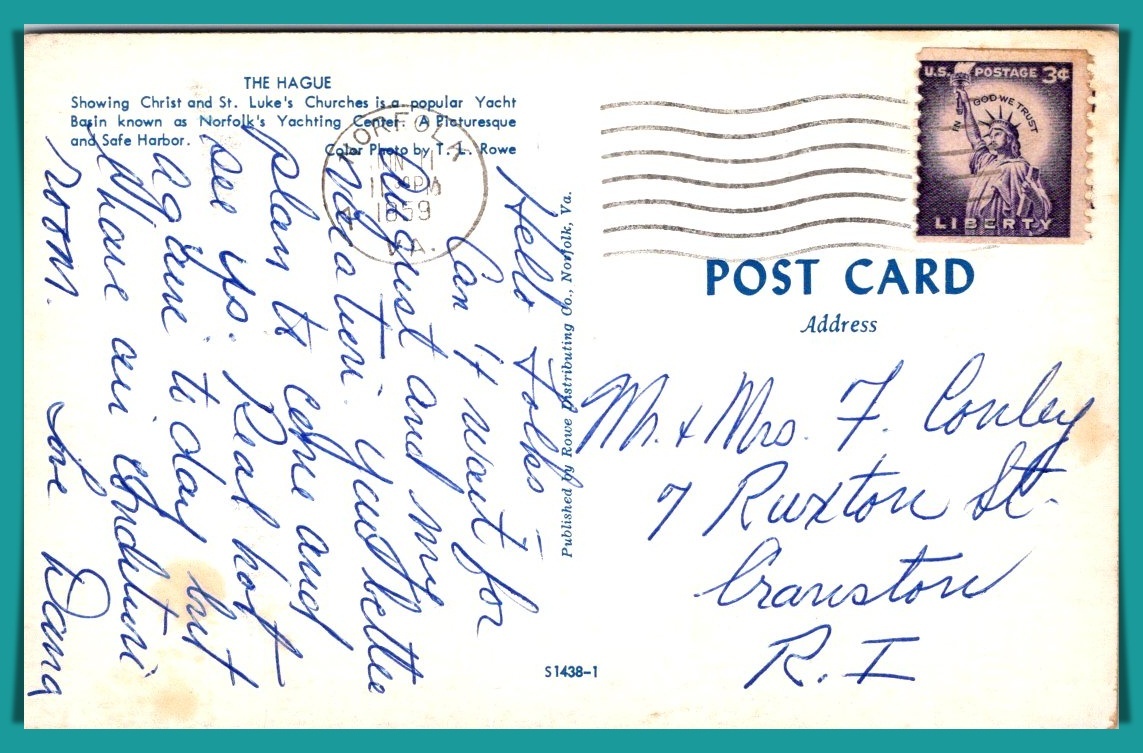 THE HAGUE
Showing Christ and St. Luke's Churches is a popular Yacht
Basin known as Norfolk's Yachting Center. A Picturesque
and Safe Harbor.
Color Photo by T. L. Rowe
Hello Folks —
Can't wait for
August and my
vacation. You better
plan to come and
see us. Real hot
again to day but
have air
room.
Love Dana
Published by Rowe Distributing Co., Norfolk, Va.
S1438-1
NORFOLK
PM
1959
VA.
U.S. POSTAGE 3¢
IN GOD WE TRUST
LIBERTY
POST CARD
Address
Mr. + Mrs. F. Conley
7 Ruxton St.
Cranston
R. I